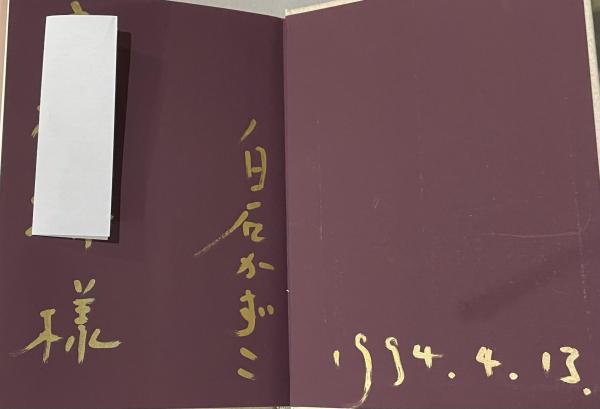 様
白石かずこ
1994.4.13.